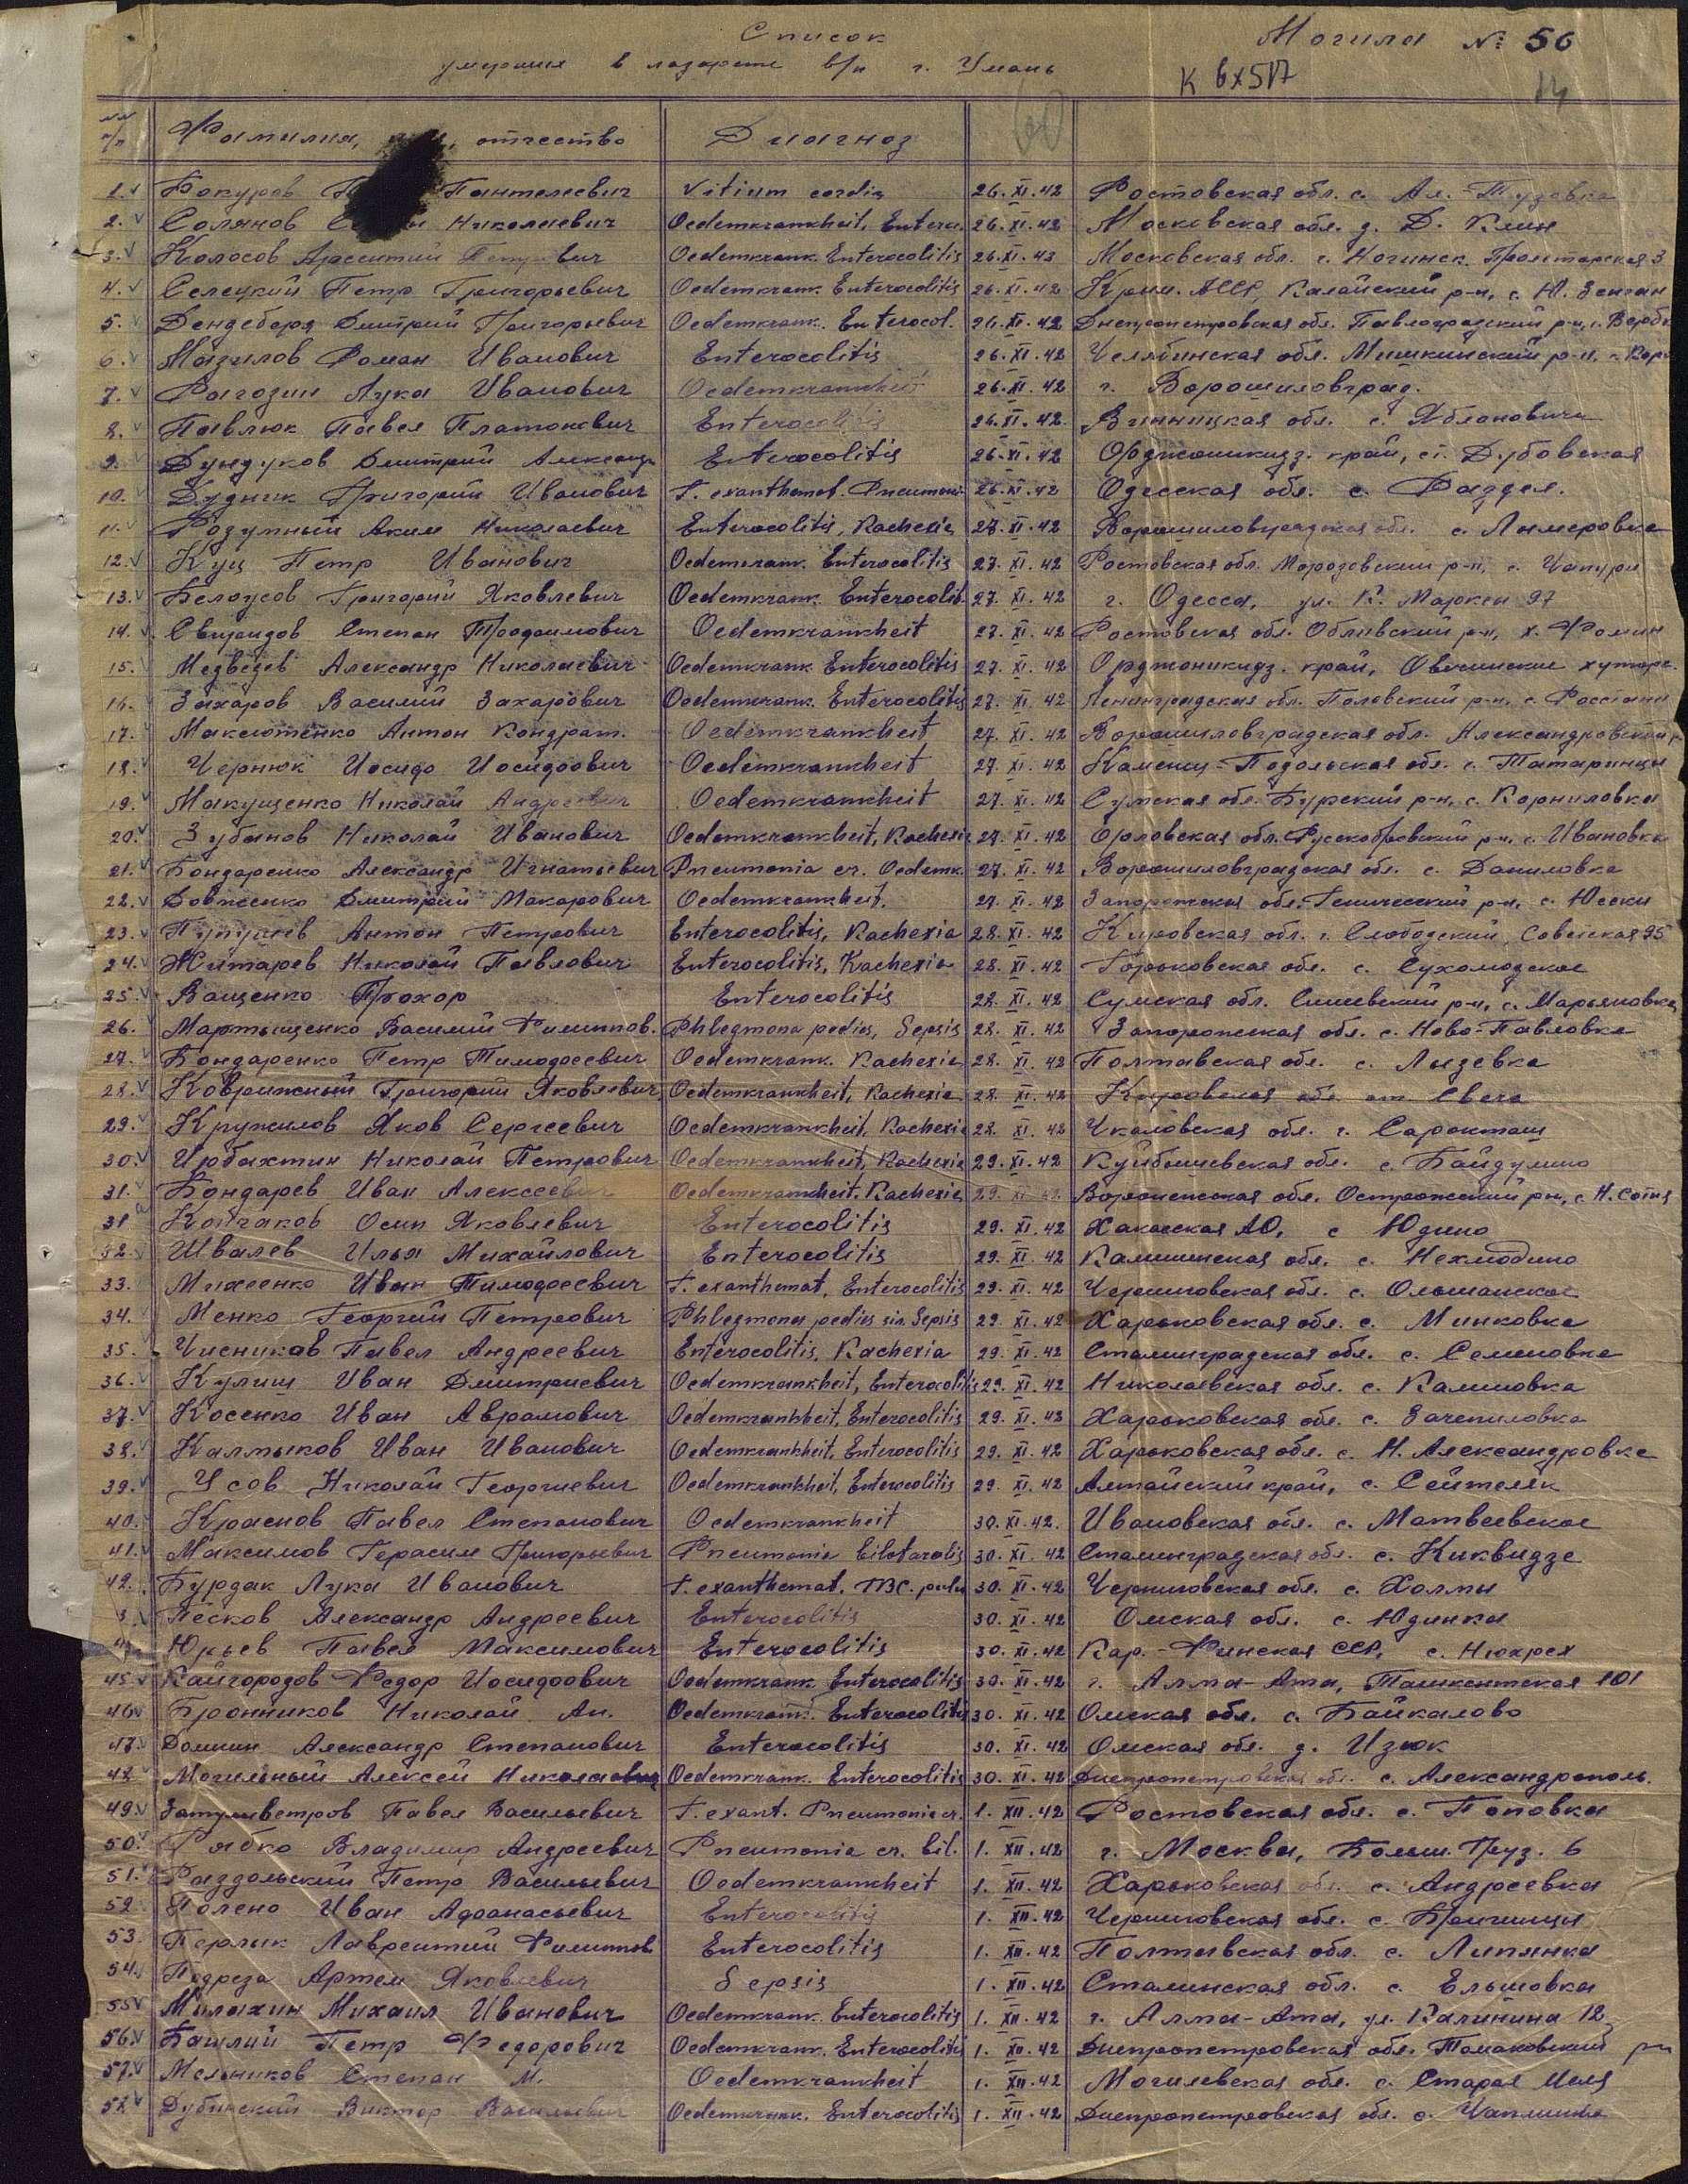 Список Могила № 56
умерших в лазарете в/п г. Умань К вх517
14
60
№№ п/п Фамилия, отчество Диагноз
1. Бокуров Пантелеевич Vitium cordis 26.XI.42 Ростовская обл. с. Ал.-Тузовка
2. Солянов Николаевич Oedemkrankheit, Enteroc. 26.XI.42 Московская обл. д. Клин
3. Колосов Арсентий Петрович Oedemkrank. Enterocolitis 26.XI.43 Московская обл. г. Ногинск, Пролетарская 3
4. Селецкий Петр Григорьевич Oedemkrank. Enterocolitis 26.XI.42 Крым. АССР, р-н, с. Н.
5. Дендеберя Дмитрий Григорьевич Oedemkrank. Enterocol. 26.XI.42 Днепропетровская обл. Павлоградский р-н, с. Вербк
6. Мазилов Роман Иванович Enterocolitis 26.XI.42 Челябинская обл. Мишкинский р-н,
7. Рагозин Лука Иванович Oedemkrankheit 26.XI.42 г. Ворошиловград.
8. Павлюк Павел Платонович Enterocolitis 26.XI.42 Винницкая обл. с. Яблановичи
9. Дундуков Дмитрий Александр Enterocolitis 26.XI.42 Орджоникидз. край, ст. Дубовская
10. Дудник Григорий Иванович T. exanthemat. Pneumoni 26.XI.42 Одесская обл. с. Раздел.
11. Розумный Аким Николаевич Enterocolitis, Kachexie 27.XI.42 Ворошиловградская обл. с. Лимеровка
12. Куц Петр Иванович Oedemkrank. Enterocolitis 27.XI.42 Ростовская обл. Морозовский р-н, с. Чапури
13. Белоусов Григорий Яковлевич Oedemkrank. Enterocolit. 27.XI.42 г. Одесса, ул. К. Маркса 97
14. Свиридов Степан Трофимович Oedemkrankheit 27.XI.42 Ростовская обл. Обливский р-н, х. Фомин
15. Медведев Александр Николаевич Oedemkrank Enterocolitis 27.XI.42 Орджоникидз. край,
16. Захаров Василий Захарович Oedemkrank. Enterocolitis 27.XI.42 Ленинградская обл. р-н, с. Росстани
17. Максютенко Антон Кондрат. Oedemkrankheit 27.XI.42 Ворошиловградская обл. Александровский р
18. Чернюк Иосиф Иосифович Oedemkrankheit 27.XI.42 Каменец-Подольская обл. с. Татаринцы
19. Макущенко Николай Андреевич Oedemkrankheit 27.XI.42 Сумская обл. р-н, с. Корниловка
20. Зубанов Николай Иванович Oedemkrankheit, Kachexie 27.XI.42 Орловская обл. р-н. с. Ивановка
21. Бондаренко Александр Игнатьевич Pneumonia cr. Oedemk. 27.XI.42 Ворошиловградская обл. с. Даниловка
22. Довженко Дмитрий Макарович Oedemkrankheit. 27.XI.42 Запорожская обл. Генический р-н, с. Юзски
23. Антон Петрович Enterocolitis, Kachexia 28.XI.42 Кировская обл. г. Слободской, Советская 95
24. Житарев Николай Павлович Enterocolitis, Kachexia 28.XI.42 Горьковская обл. с. Сухомодское
25. Ващенко Прохор Enterocolitis 28.XI.42 Сумская обл. р-н, с. Марьяновка
26. Мартыщенко Василий Филиппов. Phlegmona pedis, Sepsis 28.XI.42 Запорожская обл. с. Ново-Павловка
27. Бондаренко Петр Тимофеевич Oedemkrank. Kachexia 28.XI.42 Полтавская обл. с. Лызевка
28. Коврижный Григорий Яковлевич Oedemkrankheit, Kachexia 28.XI.42 Кировская обл. ст Свеча
29. Кружилов Яков Сергеевич Oedemkrankheit, Kachexia 28.XI.42 Чкаловская обл. г. Саракташ
30. Урбахтин Николай Петрович Oedemkrankheit, Kachexia 29.XI.42 Куйбышевская обл. с. Байдулино
31. Бондарев Иван Алексеевич Oedemkrankheit. Kachexie 29.XI.42 Воронежская обл. Острожский р-н, с. Н. Сотня
31а Колчаков Осип Яковлевич Enterocolitis 29.XI.42 Хакасская АО, с Юдино
32. Швалев Илья Михайлович Enterocolitis 29.XI.42 Калининская обл. с. Нехлюдино
33. Михеенко Иван Тимофеевич T. exanthemat, Enterocolitis 29.XI.42 Черниговская обл. с. Ольшанское
34. Менко Георгий Петрович Phlegmona pedis sin. Sepsis 29.XI.42 Харьковская обл. с. Минковка
35. Чисников Павел Андреевич Enterocolitis, Kachexia 29.XI.42 Сталинградская обл. с. Семеновка
36. Кулиш Иван Дмитриевич Oedemkrankheit, Enterocolitis 29.XI.42 Николаевская обл. с. Калиновка
37. Косенко Иван Аврамович Oedemkrankheit, Enterocolitis 29.XI.43 Харьковская обл. с. Зачепиловка
38. Калмыков Иван Иванович Oedemkrankheit, Enterocolitis 29.XI.42 Харьковская обл. с. Н. Александровка
39. Усов Николай Георгиевич Oedemkrankheit, Enterocolitis 29.XI.42 Алтайский край, с. Сейтеляк
40. Краснов Павел Степанович Oedemkrankheit 30.XI.42. Ивановская обл. с. Матвеевское
41. Максимов Герасим Григорьевич Pneumonia bilateralis 30.XI.42 Сталинградская обл. с. Киквидзе
42. Бурдак Лука Иванович T. exanthemat. TBC. pulm 30.XI.42 Черниговская обл. с. Холмы
3. Песков Александр Андреевич Enterocolitis 30.XI.42 Омская обл. с. Юдинка
4. Юрьев Павел Максимович Enterocolitis 30.XI.42 Кар.-Финская ССР, с. Нюхрех
45. Кайгородов Федор Иосифович Oedemkrank. Enterocolitis 30.XI.42 г. Алма-Ата, Ташкентская 101
46. Бронников Николай Ан. Oedemkrank. Enterocolitis 30.XI.42 Омская обл. с. Байкалово
47. Домнин Александр Степанович Enterocolitis 30.XI.42 Омская обл. д. Изюк
48. Могильный Алексей Николаевич Oedemkrank. Enterocolitis 30.XI.42 Днепропетровская обл. с. Александрополь.
49. Затуливетров Павел Васильевич T. exant. Pneumonia cr. 1.XII.42 Ростовская обл. с. Поповка
50. Рябко Владимир Андреевич Pneumonia cr. bil. 1.XII.42 г. Москва, Больш. Груз. 6
51. Раздольский Петр Васильевич Oedemkrankheit 1.XII.42 Харьковская обл. с. Андреевка
52. Полено Иван Афанасьевич Enterocolitis 1.XII.42 Черниговская обл. с.
53. Перлык Лаврентий Филиппов Enterocolitis 1.XII.42 Полтавская обл. с. Липянка
54. Подреза Артем Яковлевич Sepsis 1.XII.42 Сталинская обл. с. Ельшовка
55. Малахин Михаил Иванович Oedemkrank. Enterocolitis 1.XII.42 г. Алма-Ата, ул. Калинина 12
56. Башлий Петр Федорович Oedemkrank. Enterocolitis 1.XII.42 Днепропетровская обл. Томаковский рн
57. Мельников Степан М. Oedemkrankheit 1.XII.42 Могилевская обл. с. Старая
58. Дубинский Виктор Васильевич Oedemkrank. Enterocolitis 1.XII.42 Днепропетровская обл. с. Чаплинка